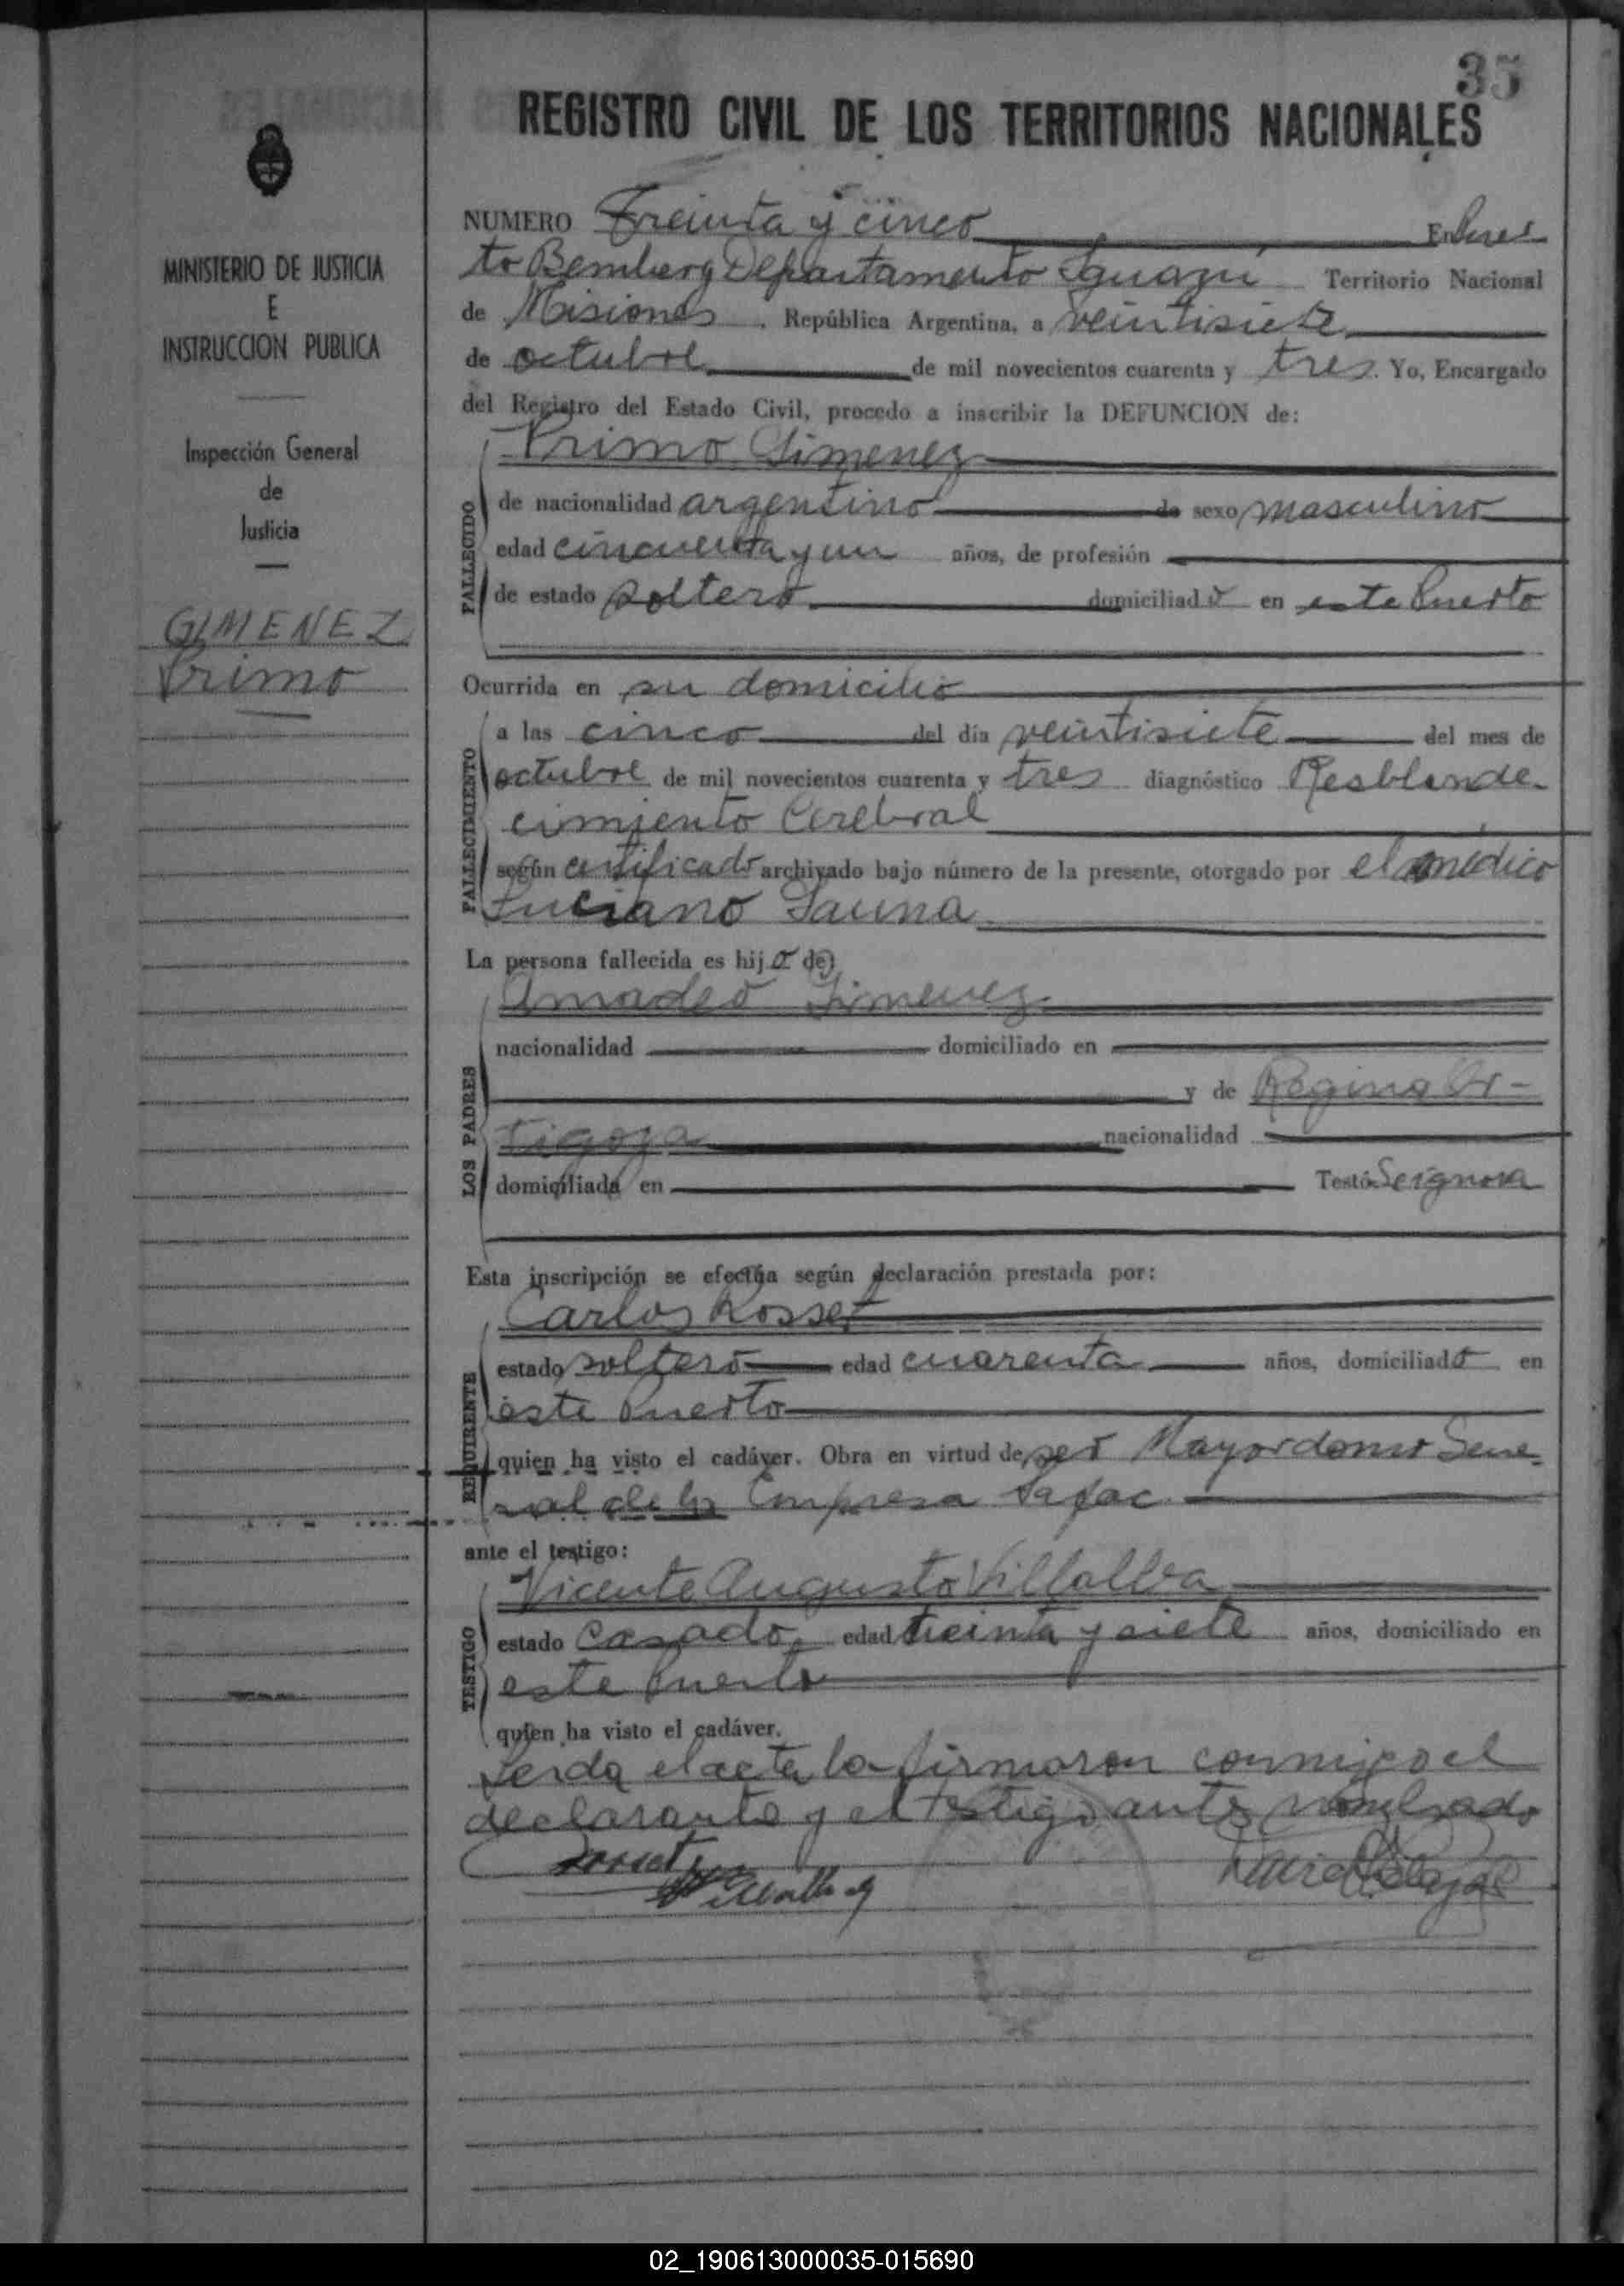 35
REGISTRO CIVIL DE LOS TERRITORIOS NACIONALES
MINISTERIO DE JUSTICIA
E
INSTRUCCION PUBLICA
Inspección General
de
Justicia
GIMENEZ
Primo
NUMERO Treinta y cinco En Puer
to Bemberg Departamento Iguazú Territorio Nacional
de Misiones, República Argentina, a veintisiete
de octubre de mil novecientos cuarenta y tres. Yo, Encargado
del Registro del Estado Civil, procedo a inscribir la DEFUNCION de:
Primo Gimenez
FALLECIDO
de nacionalidad argentino de sexo masculino
edad cincuenta y un años, de profesión
de estado soltero domiciliado en este Puerto
Ocurrida en su domicilio
FALLECIMIENTO
a las cinco del día veintisiete del mes de
octubre de mil novecientos cuarenta y tres diagnóstico Resblande-
cimiento Cerebral
según certificado archivado bajo número de la presente, otorgado por el médico
Luciano Gauna
La persona fallecida es hijo de
LOS PADRES
Amadeo Gimenez
nacionalidad domiciliado en
y de Regina Or-
tigoza nacionalidad
domiciliada en Testó: Seignora
Esta inscripción se efectúa según declaración prestada por:
REQUIRENTE
Carlos Rosset
estado soltero edad cuarenta años, domiciliado en
éste Puerto
quien ha visto el cadáver. Obra en virtud de ser Mayordomo Gene-
ral de la Empresa Safac
ante el testigo:
TESTIGO
Vicente Augusto Villalba
estado Casado, edad treinta y siete años, domiciliado en
este Puerto
quien ha visto el cadáver.
Leida el acta la firmaron conmigo el
declarante y el testigo ante nombrado
Rosset
Villalba
02_190613000035-015690